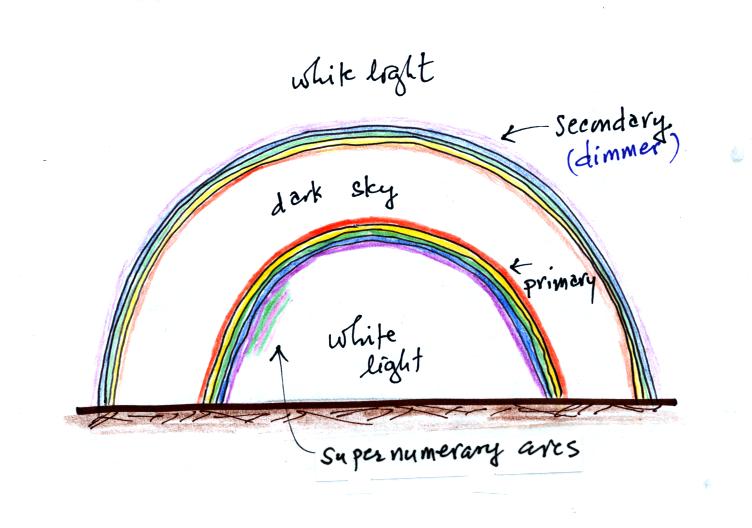 white light
secondary
(dimmer)
dark sky
primary
white
light
supernumerary arcs